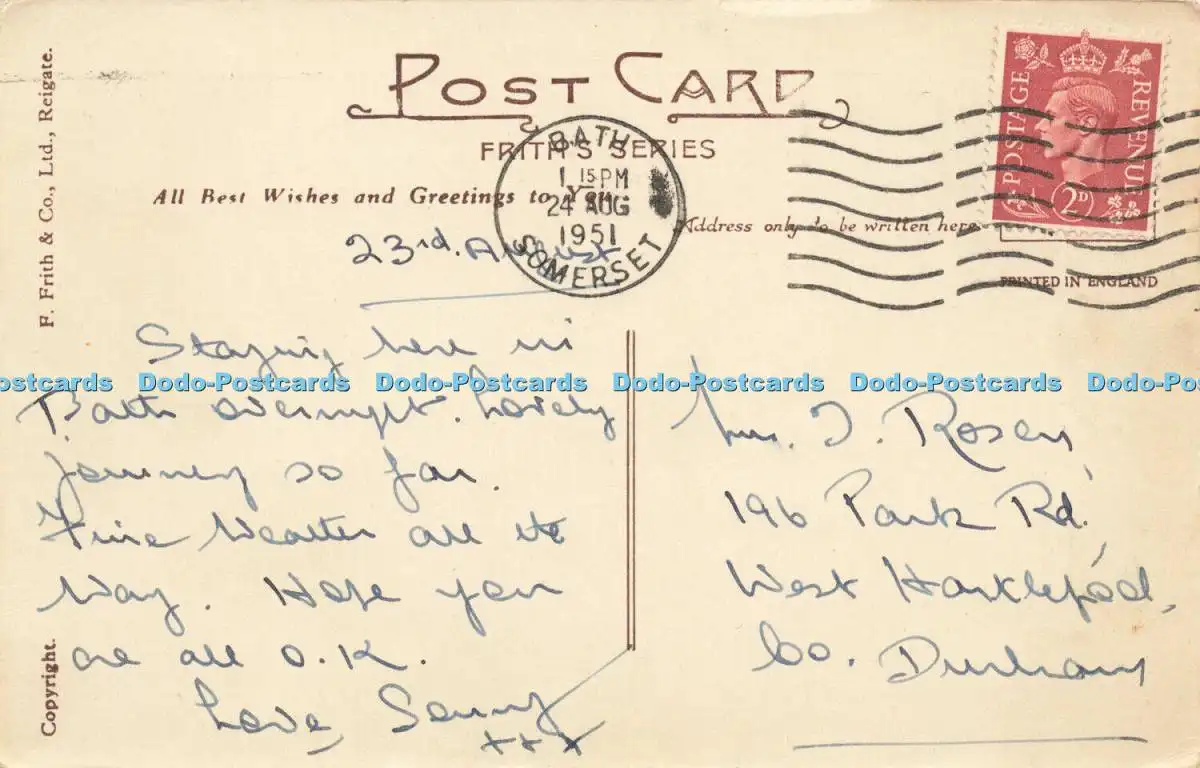 POST CARD
FRITH'S SERIES
All Best Wishes and Greetings to You.
Address only to be written here.
PRINTED IN ENGLAND
F. Frith & Co., Ltd., Reigate.
Copyright.
BATH
1 15 PM
24 AUG
1951
SOMERSET
POSTAGE REVENUE
2D
23rd. August
Staying here in
Bath overnight. Lovely
journey so far.
Fine Weather all the
Way. Hope you
are all O.K.
Love, Sonny
xxx
Rosen
196 Park Rd.
West Hartlepool,
Co. Durham
ostcards Dodo-Postcards Dodo-Postcards Dodo-Postcards Dodo-Postcards Dodo-Po